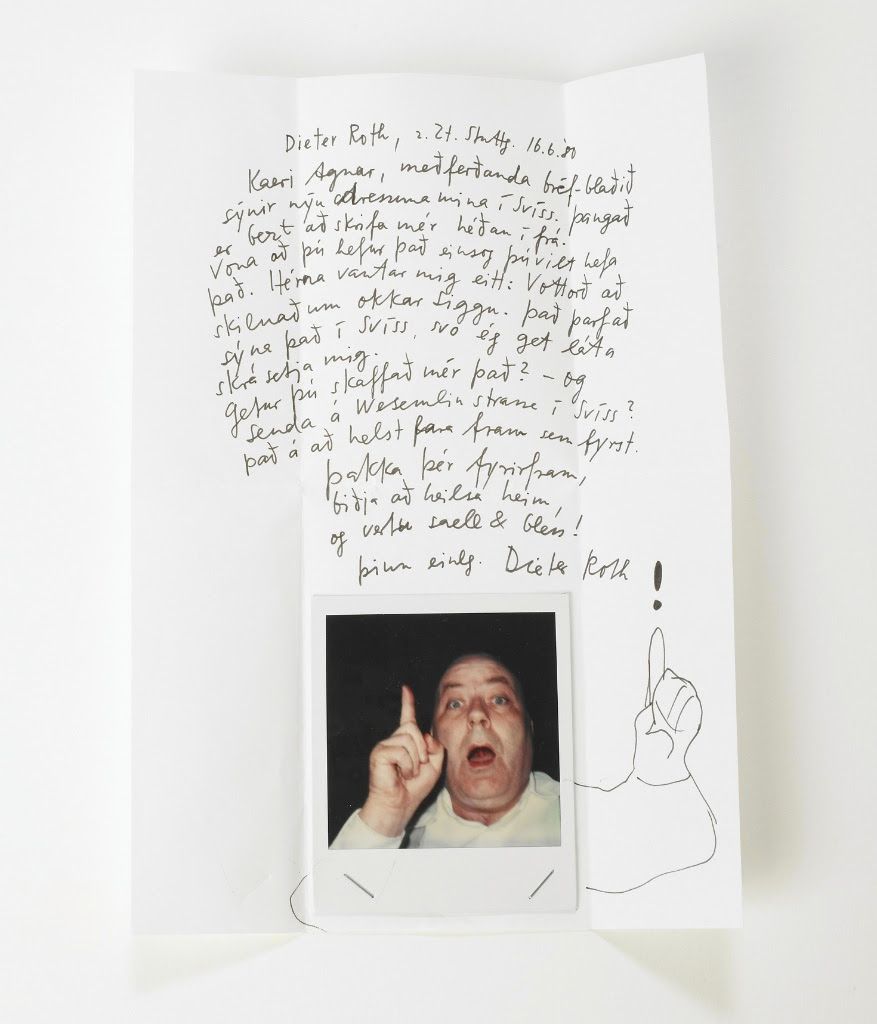 Dieter Roth, z. Zt. Stuttg. 16.6.80
Kaeri Agnar, meðferðanda bréf-blaðið
sýnir nýu adressuna mina í Svíss. þangað
er bezt að skrifa mér héðan í frá.
Vona að þú hefur það einsog þú vilt hefa
það. Hérna vantar mig eitt: Vottorð að
skilnaðum okkar Siggu. það þarf að
sýna það í Svíss, svo ég get láta
skrásetja mig.
Getur þú skaffað mér það? – og
senda á Wesemlinstrasse í Svíss?
það á að helst fara fram sem fyrst.
þakka þér fyrirfram,
biðja að heilsa heim,
og vertu saell & bless!
þinn einlg. Dieter Roth
!